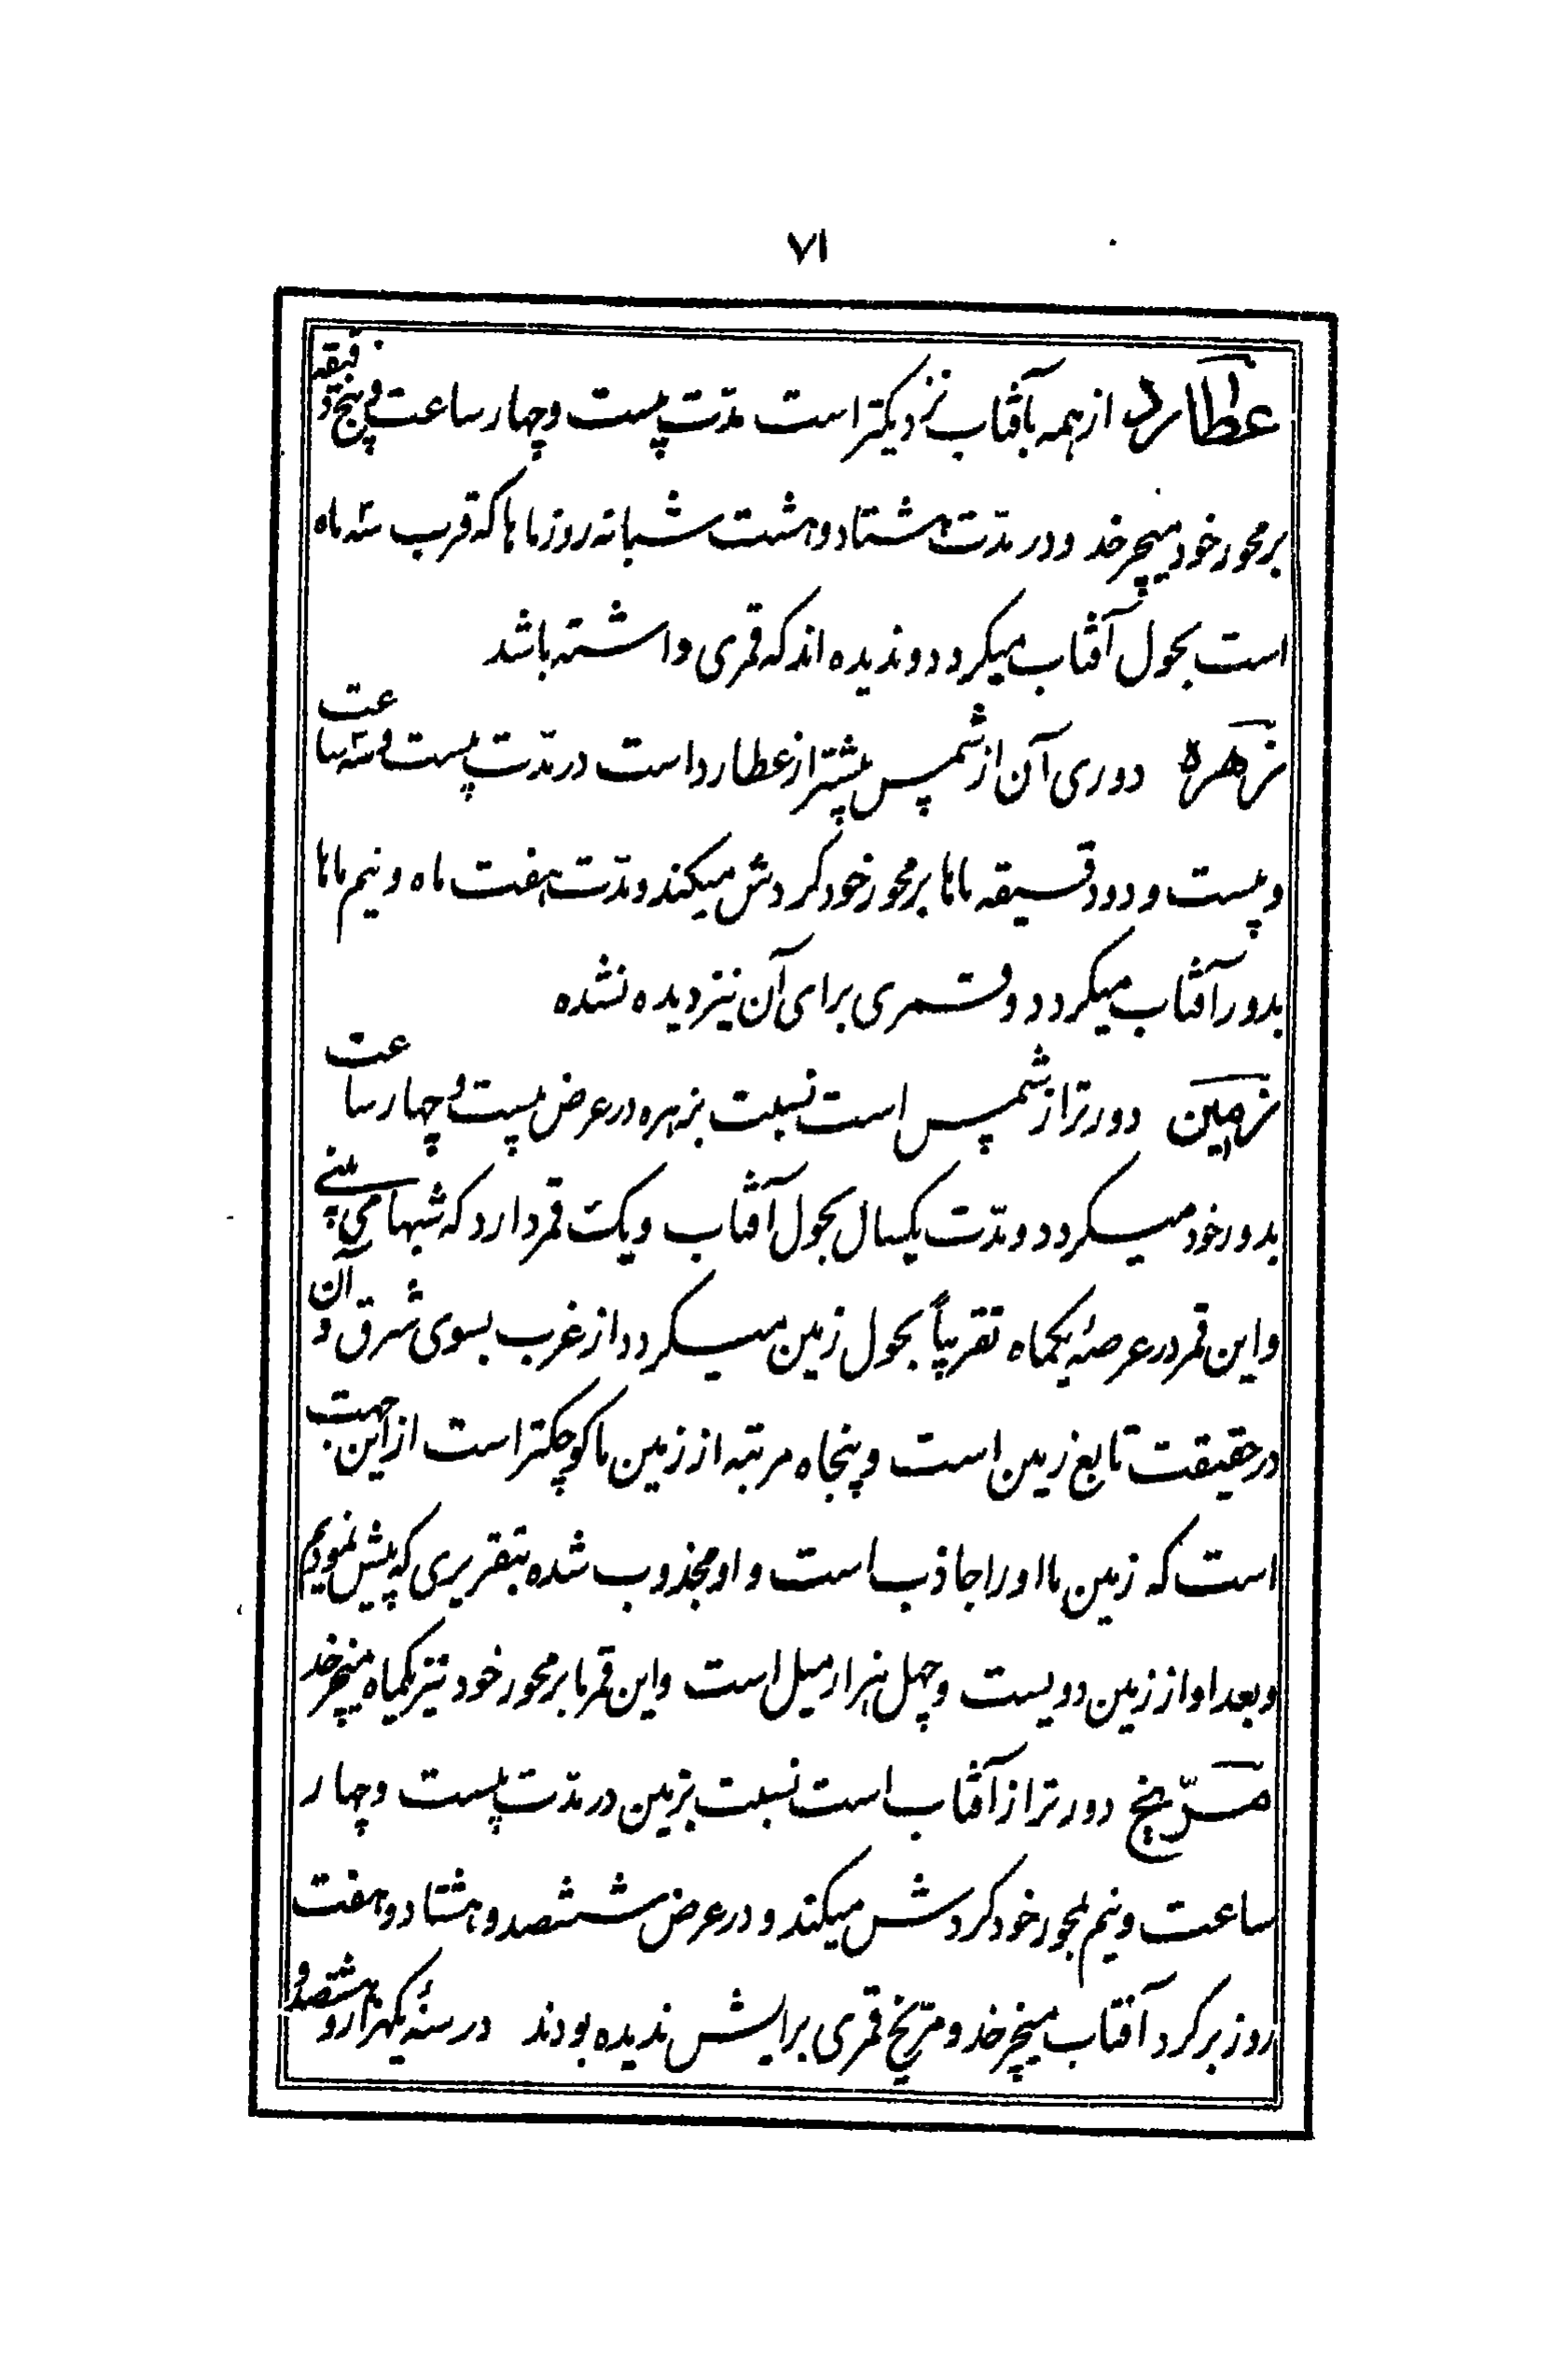 ۷۱
عطارد از همه بآفتاب نزدیکتر است مدت بیست و چهار ساعت و پنج دقیقه
بر محور خود میچرخد و در مدت هشتاد و هشت شبانه روز ماها که قرب سه ماه
است بحول آفتاب میگردد و ندیده اند که قمری داشته باشد
زهره دوری آن از شمس بیشتر از عطارد است در مدت بیست و سه ساعت
و بیست و دو دقیقه ماها بر محور خود گردش میکند و مدت هفت ماه و نیم ماها
بدور آفتاب میگردد و قمری برای آن نیز دیده نشده
زمین دورتر از شمس است نسبت بزهره در عرض بیست و چهار ساعت
بدور خود میگردد و مدت یکسال بحول آفتاب و یک قمر دارد که شبها می بینی
و این قمر در عرصۀ یکماه تقریباً بحول زمین میگردد از غرب بسوی شرق و آن
در حقیقت تابع زمین است و پنجاه مرتبه از زمین ما کوچکتر است از این جهت
است که زمین ما او را جاذب است و او مجذوب شده بتقریری که پیش نمودیم
و بعد او از زمین دویست و چهل هزار میل است و این قمر ما بر محور خود نیز یکماه میچرخد
مرّیخ دورتر از آفتاب است نسبت بزمین در مدت بیست و چهار
ساعت و نیم بمحور خود گردش میکند و در عرض ششصد و هشتاد و هفت
روز بر گرد آفتاب میچرخد و مرّیخ قمری برایش ندیده بودند در سنۀ یکهزار و هشتصد و